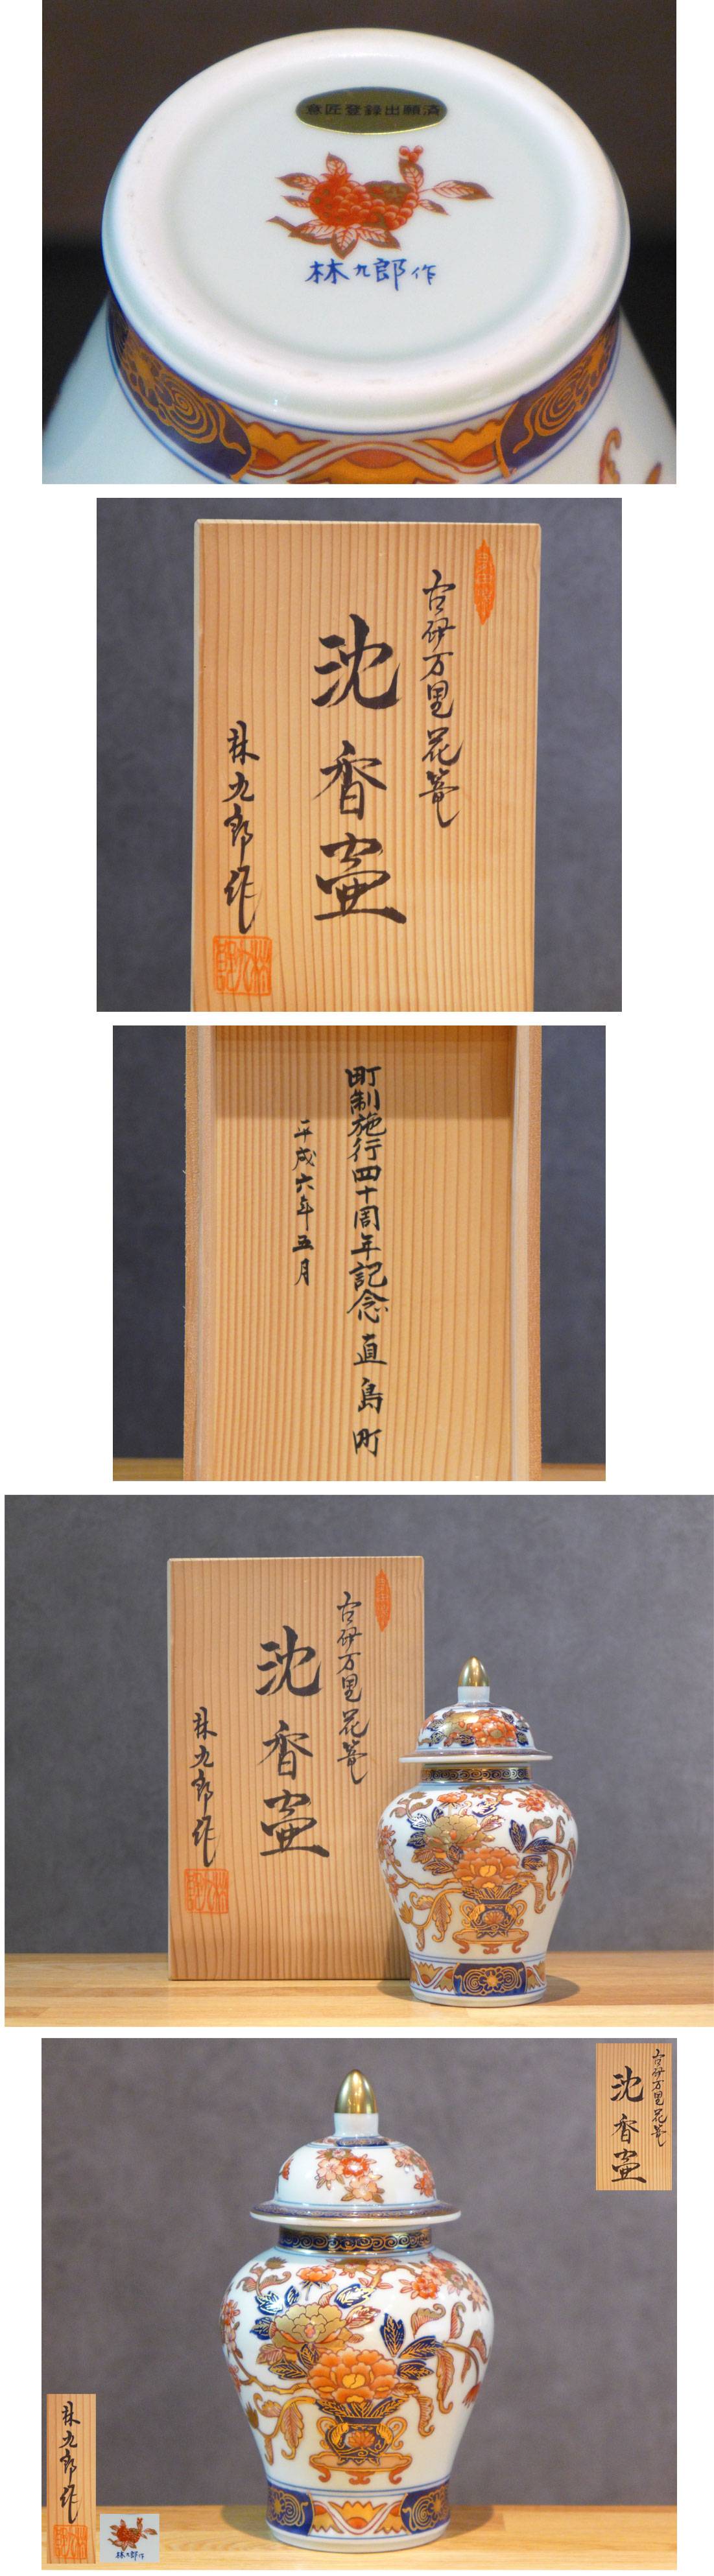 意匠登録出願済
林九郎作
古伊万里花篭
沈香壷
林九郎作
林九郎
町制施行四十周年記念 直島町
平成六年五月
古伊万里花篭
沈香壷
林九郎作
林九郎
古伊万里花篭
沈香壷
林九郎作
林九郎
林九郎作